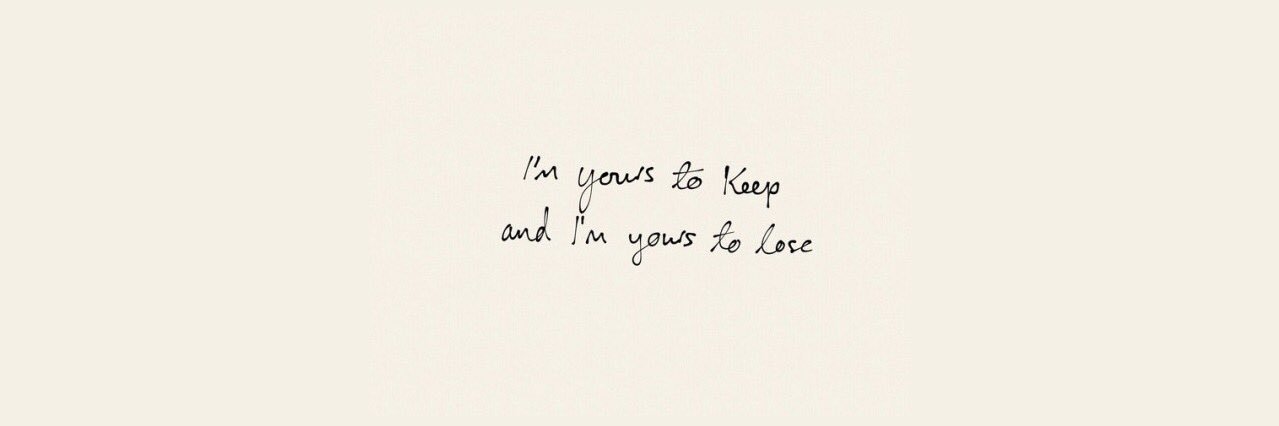 I'm yours to Keep
and I'm yours to lose